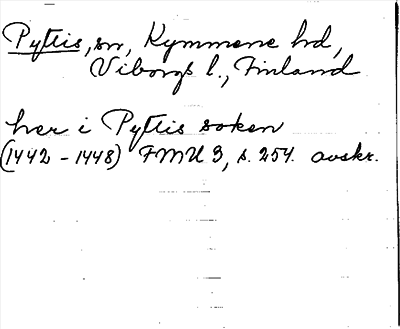 Pyttis, sn, Kymmene hd,
Viborgs l., Finland
her i Pyttis soken
(1442-1448) FMU 3, s. 254. avskr.